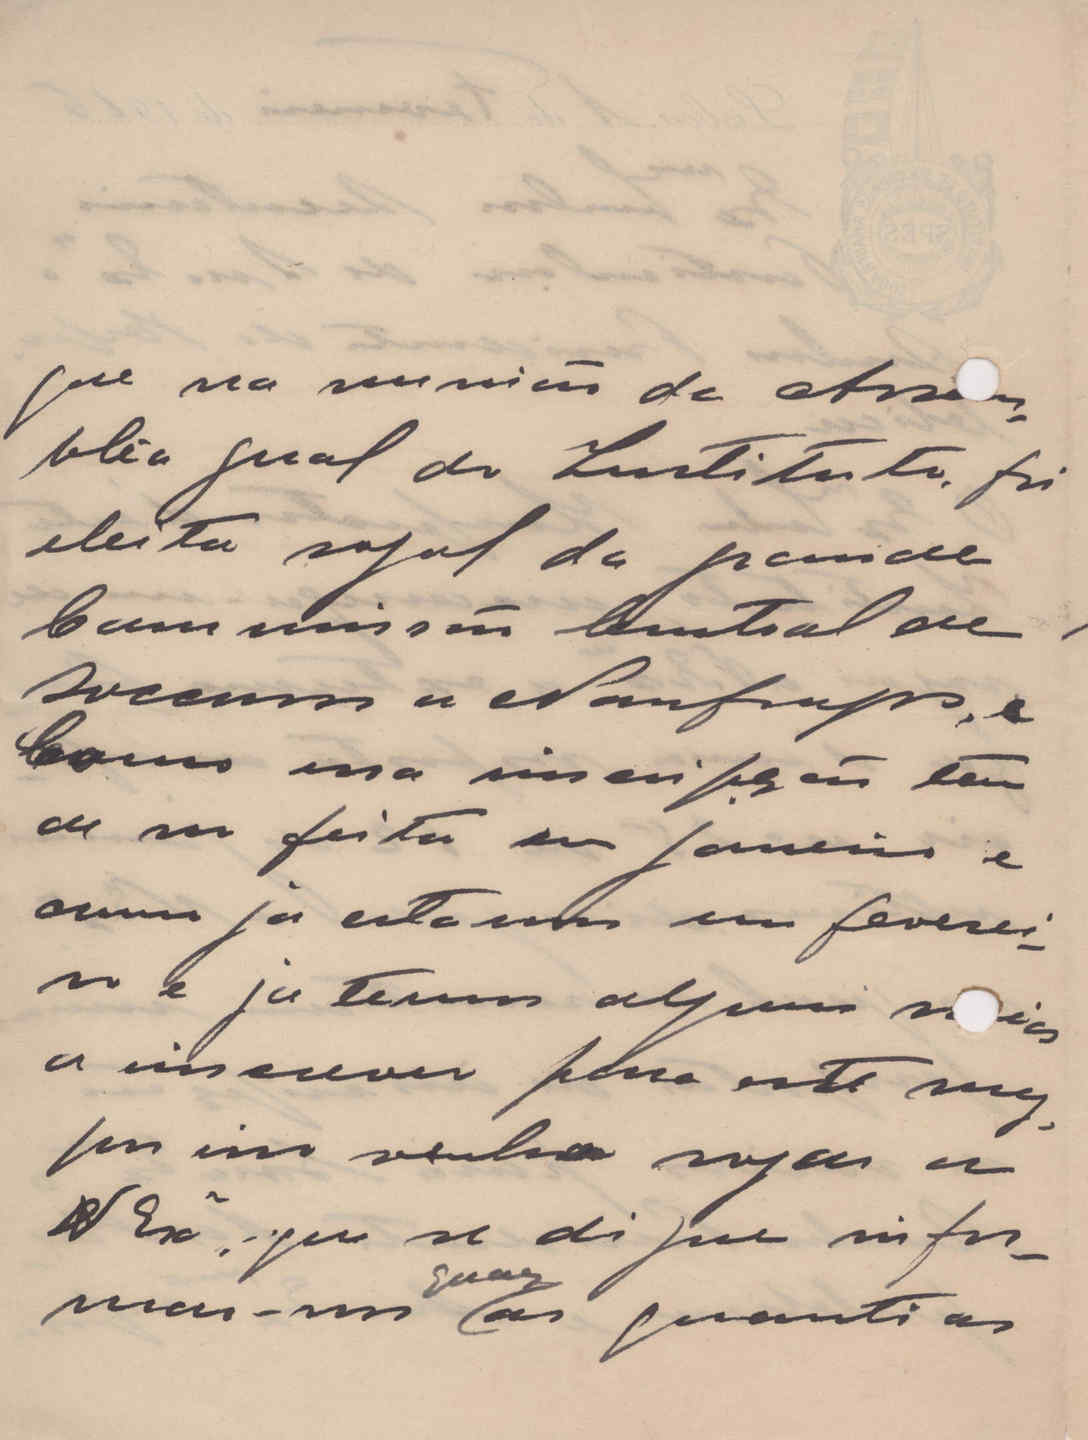 que na reunião da Assem-
bleia geral do Instituto, foi
eleita vogal da grande
Commissão Central de
Soccorros a Naufragos, e
Como essa inscripção tem
de ser feita em janeiro e
como já estamos em feverei-
ro e já temos alguns socios
a inscrever para este
por isso venho rogar a
V Exª, que se digne infor-
mar-nos quaes as quantias